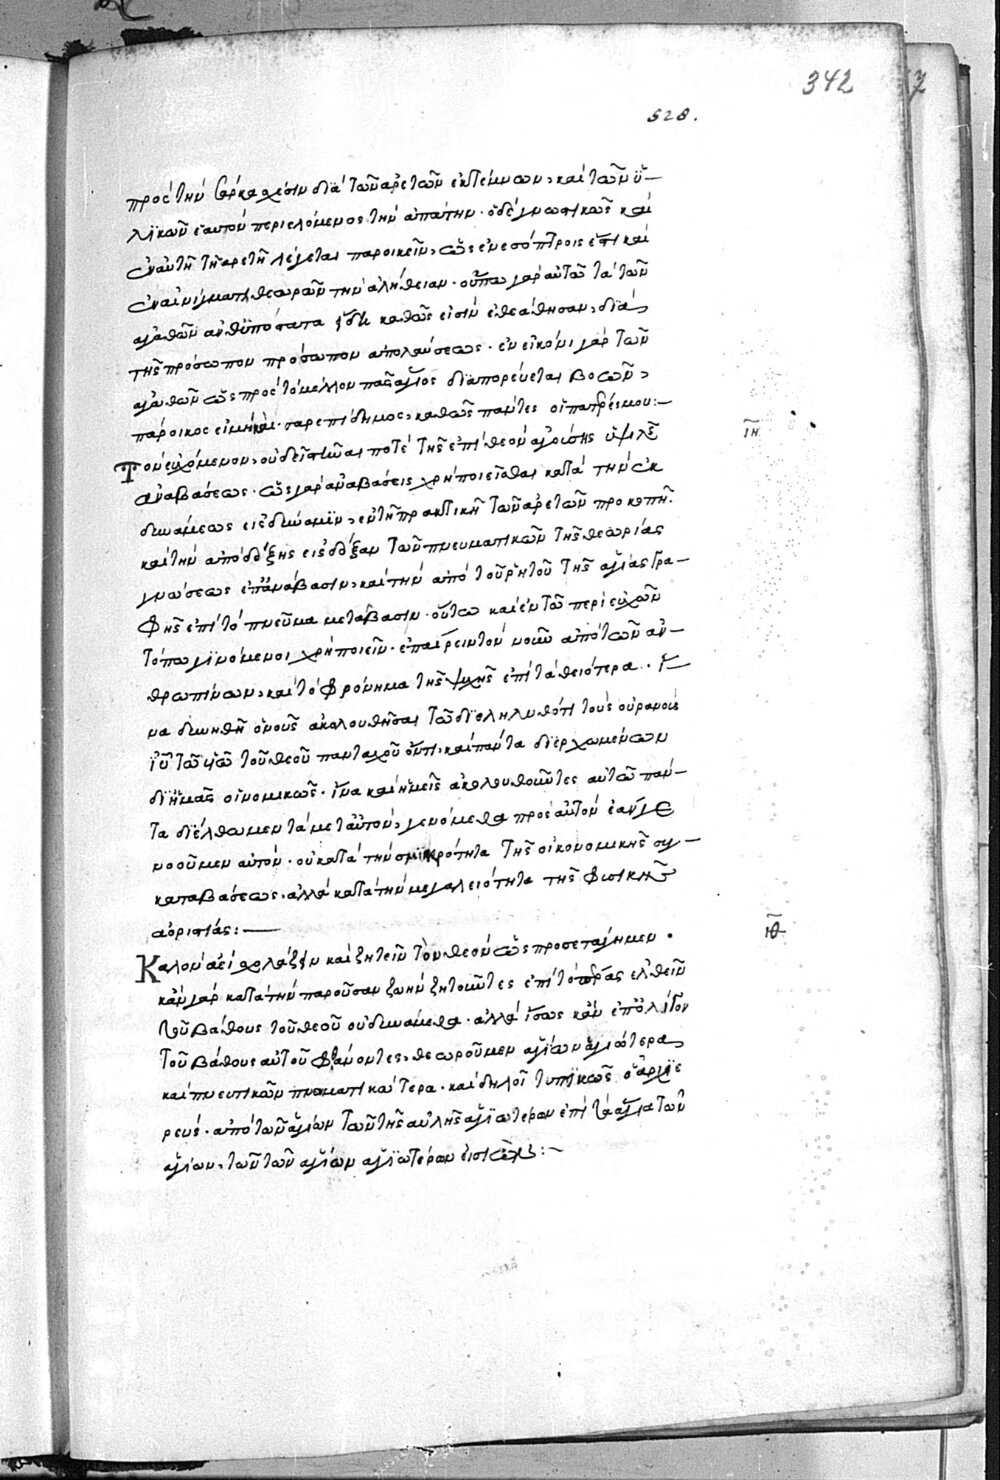 342
528.
πρὸς τὴν σάρκα σχέσιν διὰ τῶν ἀρετῶν ἐκτέμνων, καὶ τῶν ὑ-
λικῶν ἑαυτὸν περιελόμενος τὴν ἀπάτην. ὁ δὲ γνωστικῶς καὶ
ἐν αὐτῇ τῇ ἀρετῇ λέγεται παροικεῖν, ὡς ἐν ἐσόπτροις ἔτι καὶ
ἐν αἰνίγμασι θεωρῶν τὴν ἀλήθειαν. οὔπω γὰρ αὐτῷ τὰ τῶν
ἀγαθῶν αὐθυπόστατα εἴδη καθώς εἰσιν ἐθεάθησαν, διὰ
τῆς πρόσωπον πρὸς πρόσωπον ἀπολαύσεως. ἐν εἰκόνι γὰρ τῶν
ἀγαθῶν ὡς πρὸς τὸ μέλλον πᾶς ἅγιος διαπορεύεται βοῶν,
πάροικος εἰμὶ καὶ παρεπίδημος, καθὼς πάντες οἱ πατέρες μου:-
ιη
Τὸν εὐχόμενον, οὐ δεῖ στῆναι ποτὲ τῆς ἐπὶ θεὸν ἀγούσης ὑψηλῆς
ἀναβάσεως. ὡς γὰρ ἀναβάσεις χρὴ ποιεῖσθαι κατὰ τὴν ἐκ
δυνάμεως εἰς δύναμιν, ἐν τῇ πρακτικῇ τῶν ἀρετῶν προκοπῇ.
καὶ τὴν ἀπὸ δόξης εἰς δόξαν τῶν πνευματικῶν τῆς θεωρίας
γνώσεως ἐπανάβασιν, καὶ τὴν ἀπὸ τοῦ ῥητοῦ τῆς ἁγίας γρα-
φῆς ἐπὶ τὸ πνεῦμα μετάβασιν. οὕτω καὶ ἐν τῷ περὶ εὐχῶν
τόπῳ γινόμενοι χρὴ ποιεῖν. ἐπαίρειν τὸν νοῦν ἀπὸ τῶν ἀν-
θρωπίνων, καὶ τὸ φρόνημα τῆς ψυχῆς ἐπὶ τὰ θειότερα. ἵ-
να δυνηθῇ ὁ νοῦς ἀκολουθῆσαι τῷ διεληλυθότι τοὺς οὐρανοὺς
ιυ τῷ υἱῷ τοῦ θεοῦ πανταχοῦ ὄντι, καὶ πάντα διερχομένων
δι' ἡμᾶς οἰκονομικῶς. ἵνα καὶ ἡμεῖς ἀκολουθοῦντες αὐτῷ πάν-
τα διέλθωμεν τὰ μετ' αὐτὸν, γενόμεθα πρὸς αὐτὸν ἐὰν με
νοοῦμεν αὐτὸν. οὐ κατὰ τὴν σμικρότητα τῆς οἰκονομικῆς συ-
καταβάσεως, ἀλλὰ κατὰ τὴν μεγαλειότητα τῆς φυσικῆς
ἀοριστίας:-
ιθ
Καλὸν ἀεὶ σχολάζειν καὶ ζητεῖν τὸν θεὸν ὡς προσετάγημεν.
κἂν γὰρ κατὰ τὴν παροῦσαν ζωὴν ζητοῦντες ἐπὶ τὸ πέρας ἐλθεῖν
τοῦ βάθους τοῦ θεοῦ οὐ δυνάμεθα. ἀλλὰ ἴσως κἂν ἐπ' ὀλίγον
τοῦ βάθους αὐτοῦ φθάνοντες, θεωροῦμεν ἁγίων ἁγιώτερα
καὶ πνευτικῶν πνευματικώτερα. καὶ δηλοῖ τυπικῶς ὁ ἀρχιε
ρεὺς. ἀπὸ τῶν ἁγίων τῶν τῆς αὐλῆς ἁγιωτέρων ἐπὶ τὰ ἅγια τῶν
ἁγίων, τῶν τῶν ἁγίων ἁγιωτέρων εἰσιών:-